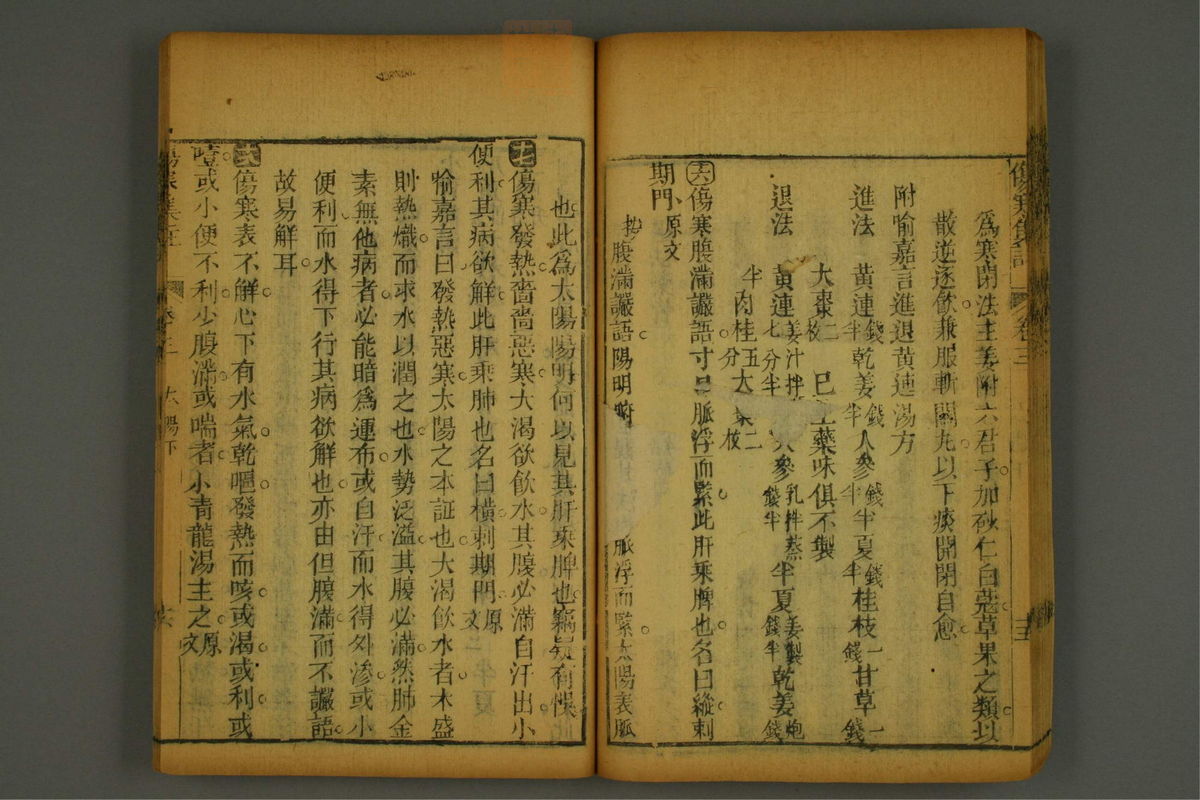 傷寒
卷三
為寒閉法主姜附六君子加砂仁白蔻草果之類以
散逆逐飲兼服斬關丸以下痰開閉自愈
附喻嘉言進退黃連湯方
進法 黃連錢半乾姜錢半人參錢半半夏錢半桂枝一錢甘草一錢
大棗二枚 已上藥味俱不製
退法 黃連七分半姜汁拌 人參乳拌蒸錢半半夏姜製錢半乾姜炮錢
半肉桂五分大棗二枚
六傷寒腹滿讝語寸口脈浮而緊此肝乘脾也名曰縱刺
期門原文
按腹滿讝語陽明腑 脈浮而緊太陽表脈
也此為太陽陽明何以見其肝乘脾也竊疑有悞
十七傷寒發熱嗇嗇惡寒大渴欲飲水其腹必滿自汗出小
便利其病欲解此肝乘肺也名曰橫刺期門原文
喻嘉言曰發熱惡寒太陽之本証也大渴飲水者木盛
則熱熾而求水以潤之也水勢泛溢其腹必滿然肺金
素無他病者必能暗為運布或自汗而水得外滲或小
便利而水得下行其病欲解也亦由但腹滿而不讝語
故易解耳
傷寒表不解心下有水氣乾嘔發熱而咳或渴或利或
噎或小便不利少腹滿或喘者小青龍湯主之原文
卷三 太陽下